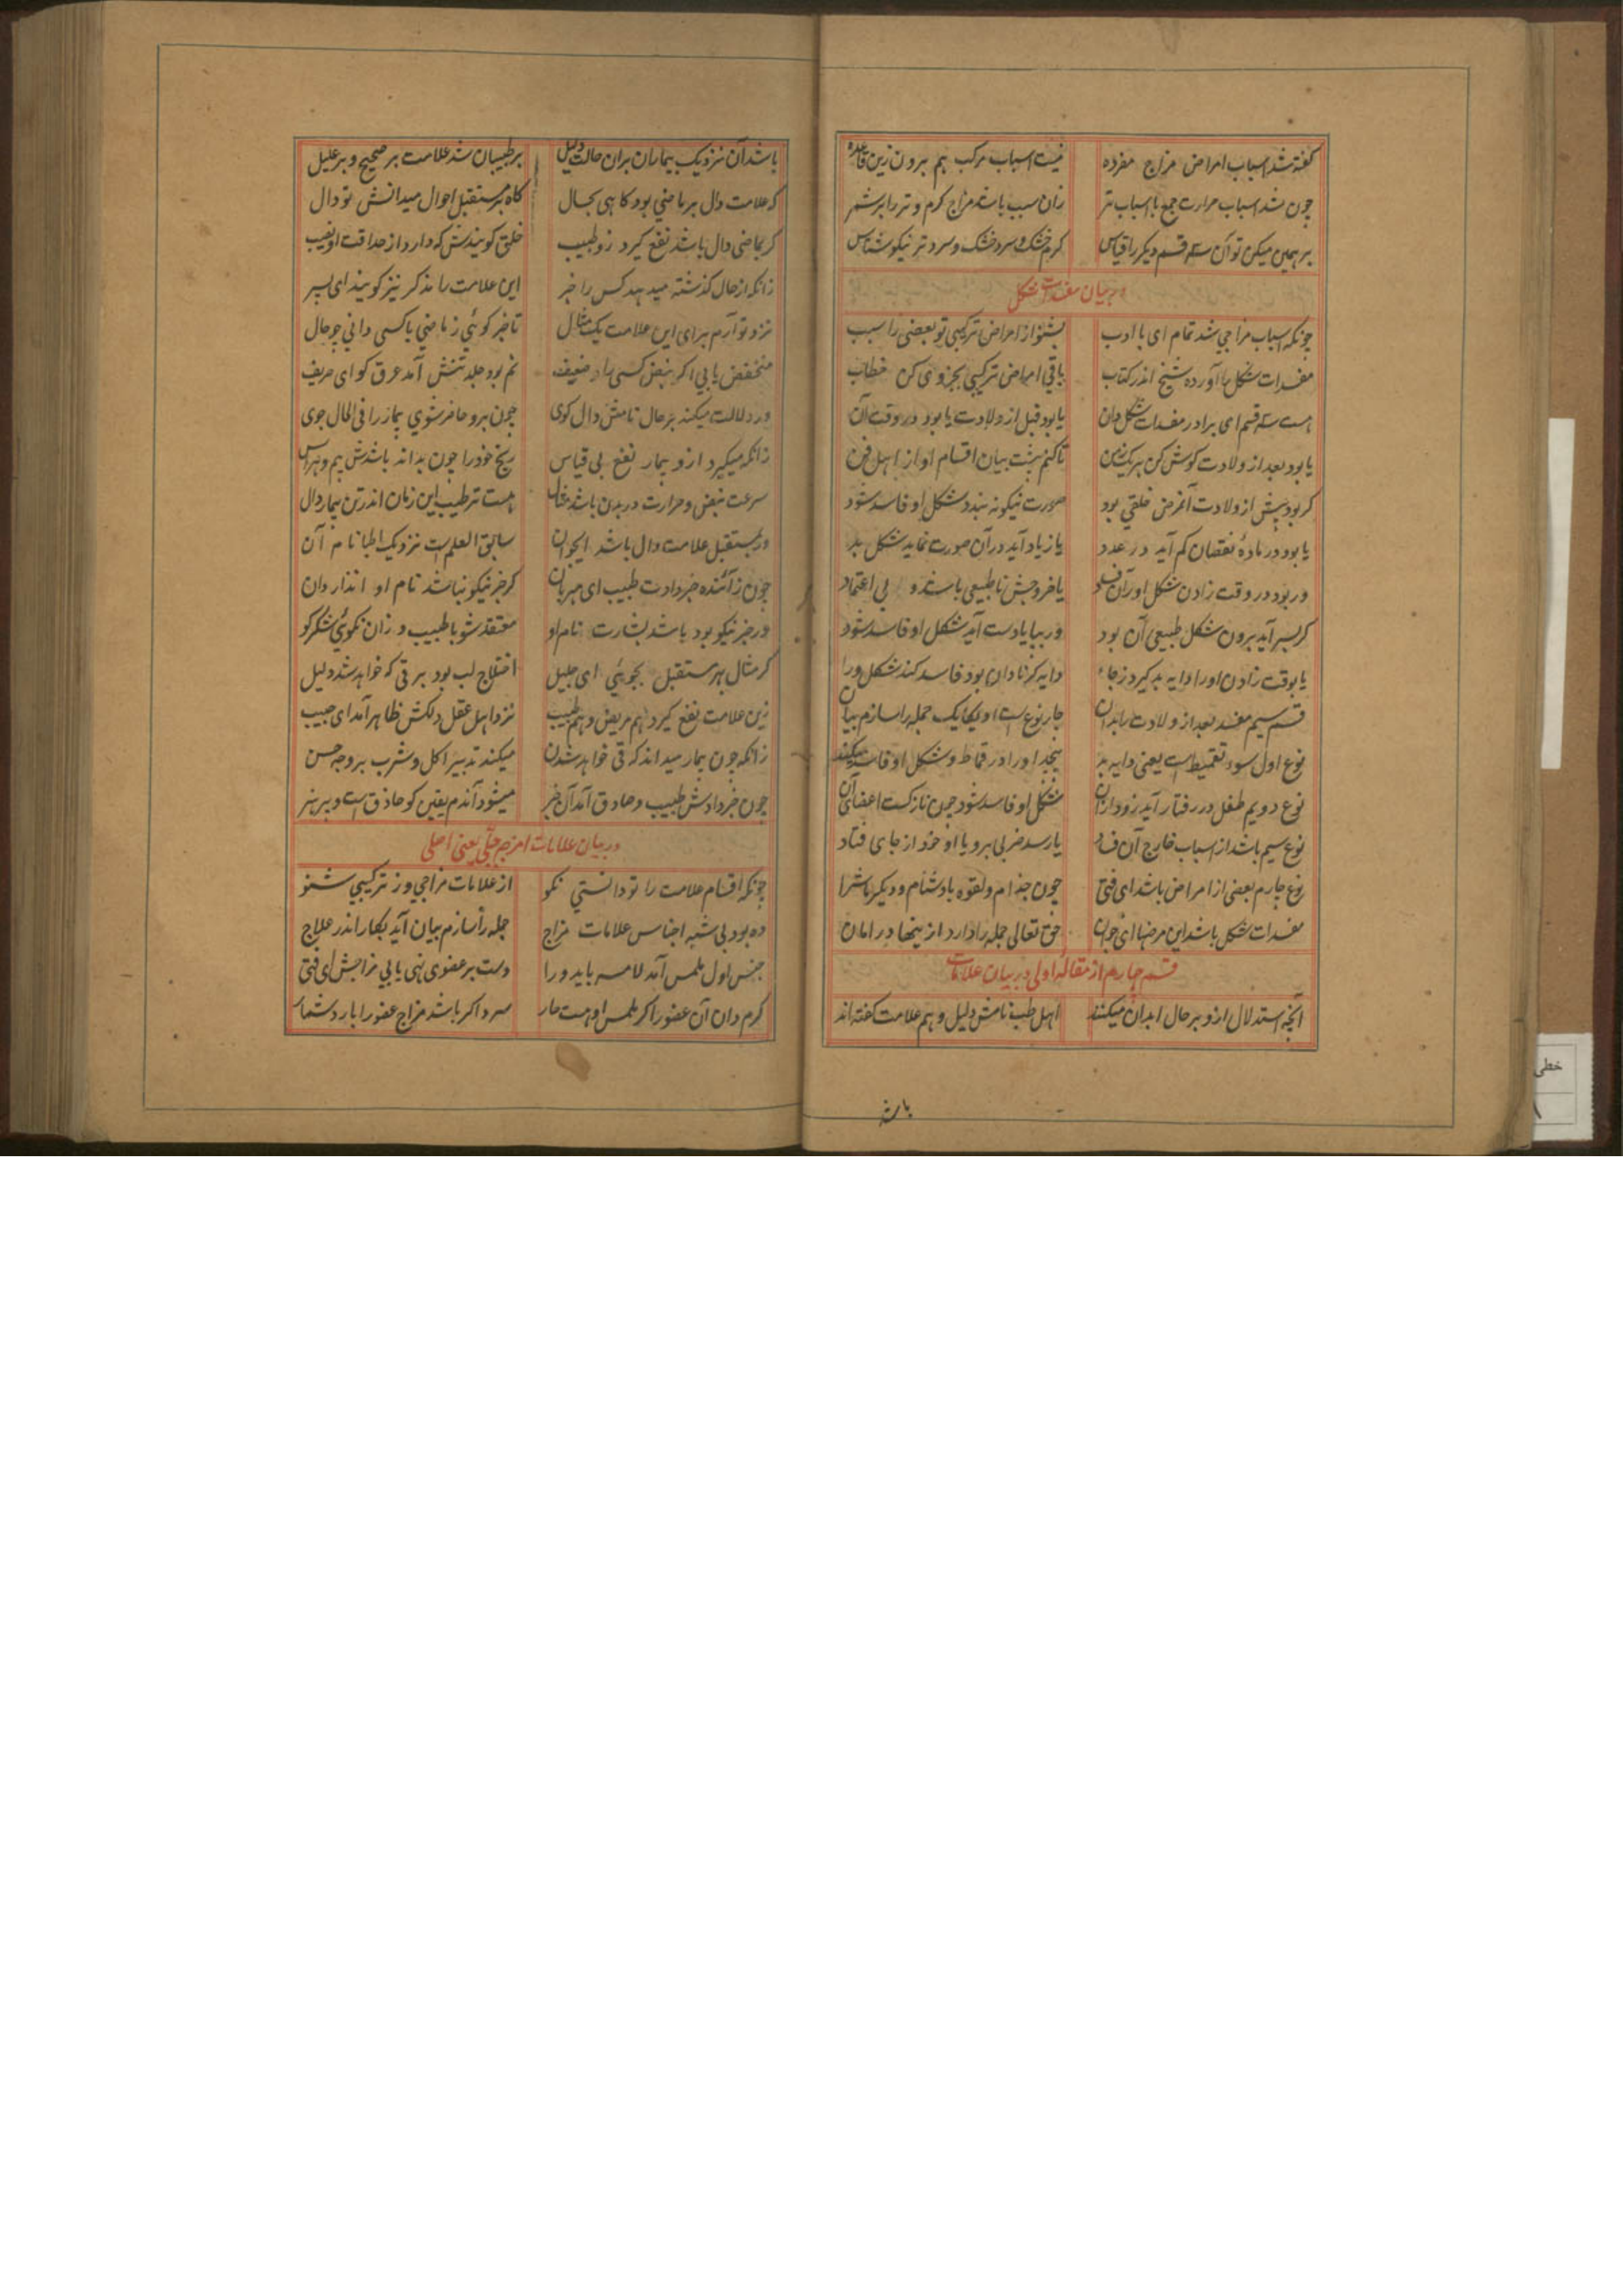 گفته شد اسباب امراض مزاج مفرده نیست اسباب مرکب هم برون زین قاعده
چون شد اسباب حرارت جمع با اسباب تر زان سبب باشد مزاج کرم و تر را بر شمر
بر همین میکن تو آن سه قسم دیکر را قیاس کرم خشک و سرد خشک و سرد تر نیکو شناس
در بیان مفسدات شکل
چونکه اسباب مزاجی شد تمام ای با ادب بشنو از امراض ترکیبی تو بعضی را سبب
مفسدات شکل ها آورده شیخ اندر کتاب باقی امراض ترکیبی بجزوی کن خطاب
هست سه قسم ای برادر مفسدات شکل دان یا بود قبل از ولادت یا بود در وقت آن
یا بود بعد از ولادت کوش کن هر یک زمن تا کنم پیشت بیان اقسام او از اهل فن
کر بود پیش از ولادت آنمرض خلقی بود صورت نیکو نه بندد شکل او فاسد شود
یا بود در ماده نقصان کم آید در عدد یا زیاد آید در آن صورت نماید شکل بد
ور بود در وقت زادن شکل او را آن فساد یا خروجش نا طبیعی باشد و بی اعتماد
کر بسر آید برون شکل طبیعی آن بود ور بپا یا دست آید شکل او فاسد شود
یا بوقت زادن او را دایه بد کیرد زجا دایه کر نادان بود فاسد کند شکل ورا
قسم سیم مفسد بعد از ولادت را بدان چار نوع است او یکایک جمله را سازم بیان
نوع اول سوء تقمیط است یعنی دایه بد پیچد او را در قماط و شکل او فاسد میکند
نوع دویم طفل در رفتار آید زود از آن شکل او فاسد شود چون نازکست اعضای آن
نوع سیم باشد از اسباب خارج آن فساد یا رسد ضربی برو یا او خود از جای فتاد
نوع چارم بعضی از امراض باشد ای فتی چون جذام و لقوه بادشنام و دیکر ماشرا
مفسدات شکل باشد این مرضها ای جوان حق تعالی جمله را دارد از ینها در امان
قسم چارم از مقاله اولی در بیان علامات
آنچه استدلال ازو بر حال ابدان میکنند اهل طب نامش دلیل و هم علامت کفته اند
باشد
باشد آن نزدیک بیماران بران حالت دلیل بر طبیبان شد علامت بر صحیح و بر علیل
که علامت دال بر ماضی بود کاهی بحال کاه بر مستقبل احوال میدانش تو دال
کر بماضی دال باشد نفع کیرد زو طبیب خلق کویندش که دارد از حذاقت او نصیب
زانکه از حال کذشته میدهد کس را خبر این علامت را مذکر نیز کویند ای پسر
نزد تو آرم برای این علامت یک مثال تا خبر کوئی زماضی با کسی دانی چو حال
منخفض یابی اکر نبض کسی را و ضعیف نم بود جلد تنش آمد عرق کو ای حریف
ور دلالت میکند بر حال نامش دال کوی چون برو حاضر شوی بیمار را فی الحال جوی
زانکه میکیرد ازو بیمار نفع بی قیاس رنج خود را چون بداند باشدش بیم و هراس
سرعت نبض و حرارت در بدن باشد مثال هست ترطیب این زمان اندر تن بیمار دال
ور بمستقبل علامت دال باشد ایجوان سابق العلم است نزدیک اطبا نام آن
چون ز آئنده خبر دادت طبیب ای مهربان کر خبر نیکو نباشد نام او انذار دان
ور خبر نیکو بود باشد بشارت نام او معتقد شو با طبیب و زان نکوئی شکر کو
کر مثال بهر مستقبل بجوئی ای جلیل اختلاج لب بود بر قی که خواهد شد دلیل
زین علامت نفع کیرد هم مریض و هم طبیب نزد اهل عقل دلکش ظاهر آمد ای حبیب
زانکه چون بیمار میداند که قی خواهد شدن میکند تدبیر اکل و شرب بر وجه حسن
چون خبر دادش طبیب و صادق آمد آن خبر میشود آندم یقین کو حاذق است و پر هنر
در بیان علامات امزجه جبلی یعنی اصلی
چونکه اقسام علامت را تو دانستی نکو از علامات مزاجی وز ترکیبی شنو
ده بود بی شبه اجناس علامات مزاج جمله را سازم بیان آید بکار اندر علاج
جنس اول ملمس آمد لامسه باید ورا دست بر عضوی نهی یابی مزاجش ای فتی
کرم دان آن عضو را کر ملمس او هست حار سرد اکر باشد مزاج عضو را بارد شمار
خطی